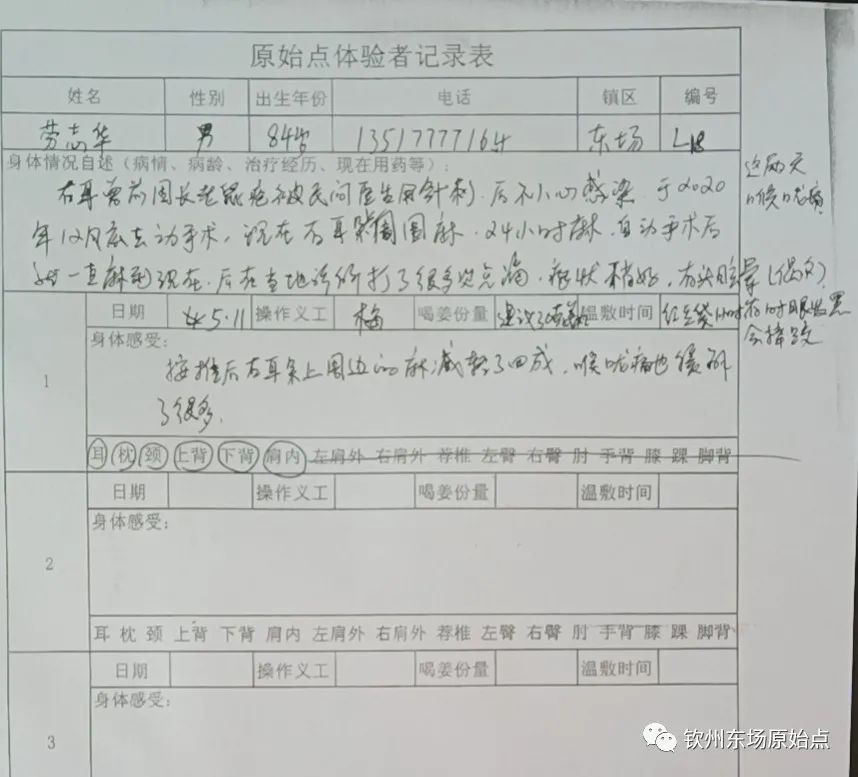 原始点体验者记录表
姓名 性别 出生年份 电话 镇区 编号
劳志华 男 84岁 13517777164 东场 L18
身体情况自述（病情、病龄、治疗经历、现在用药等）：
右耳曾前因长老鼠疮被民间医生用针刺.后不小心感染.于2020
年12月底去动手术,现在右耳围麻.24小时麻.自动手术后
一直麻到现在.后在当地诊所打了很多次点滴.症状稍好,有头眩晕(偶尔)
这两天
喉咙痛
有时眼发黑
会摔跤
1
日期 4.5.11 操作义工 梅 喝姜份量 建议 温敷时间 红豆袋
身体感受：
按推后右耳朵上周边的麻,减轻了四成,喉咙痛也缓解
了很多.
耳 枕 颈 上背 下背 肩内 左肩外 右肩外 荐椎 左臀 右臀 肘 手背 膝 踝 脚背
2
日期 操作义工 喝姜份量 温敷时间
身体感受：
耳 枕 颈 上背 下背 肩内 左肩外 右肩外 荐椎 左臀 右臀 肘 手背 膝 踝 脚背
3
日期 操作义工 喝姜份量 温敷时间
身体感受：
钦州东场原始点